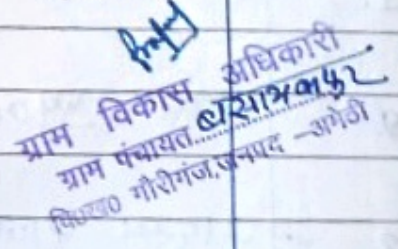 ग्राम विकास अधिकारी
ग्राम पंचायत..बसायकपुर
वि०ख० गौरीगंज, जनपद -अमेठी